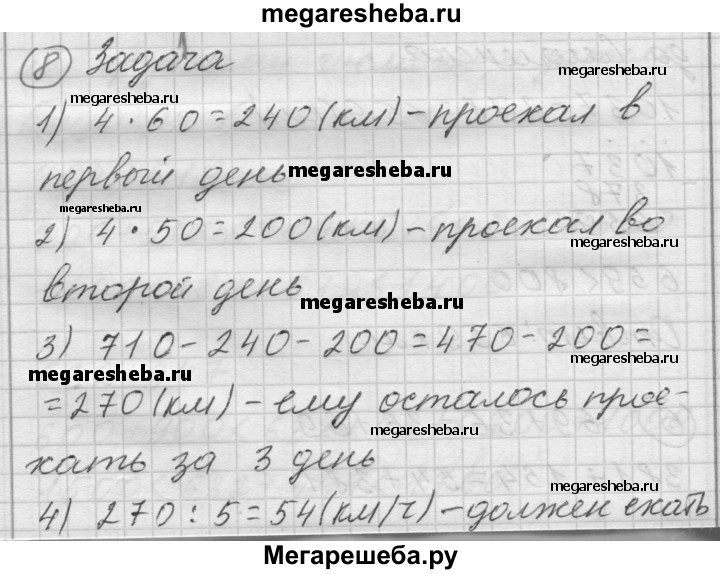 megaresheba.ru
8 Задача
megaresheba.ru
megaresheba.ru
1) 4 · 60 = 240 (км) – проехал в
первый день
megaresheba.ru
megaresheba.ru
2) 4 · 50 = 200 (км) – проехал во
megaresheba.ru
второй день
megaresheba.ru
3) 710 – 240 – 200 = 470 – 200 =
megaresheba.ru
megaresheba.ru
= 270 (км) – ему осталось прое-
megaresheba.ru
хать за 3 день
megaresheba.ru
4) 270 : 5 = 54 (км/ч) – должен ехать
Мегарешеба.ру